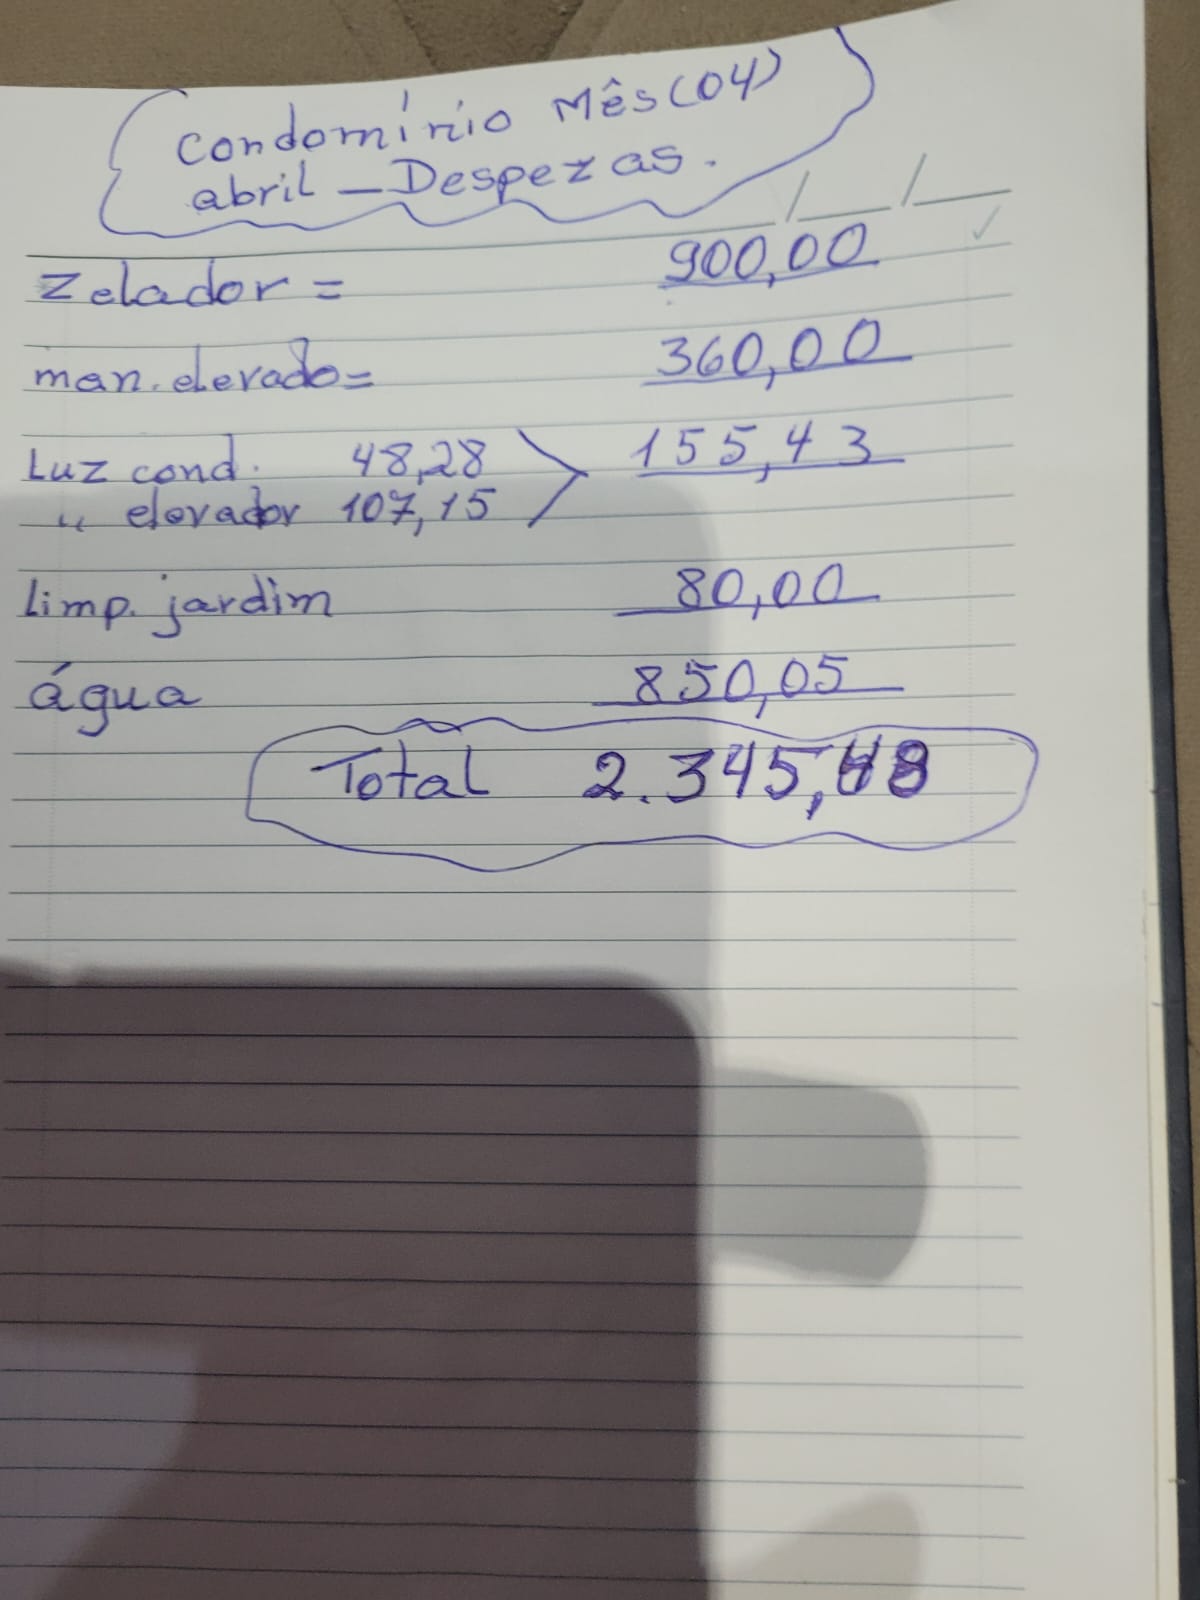 Condomínio Mês (04)
abril — Despezas.
Zelador = 900,00
man. elevado = 360,00
Luz cond. 48,28 155,43
" elevador 107,15
limp. jardim 80,00
água 850,05
Total 2.345,48